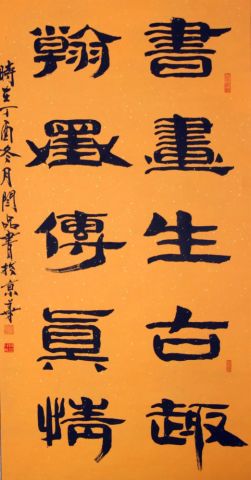 書畫生古趣
翰墨傳眞情
時在丁酉冬月閆品書於京華